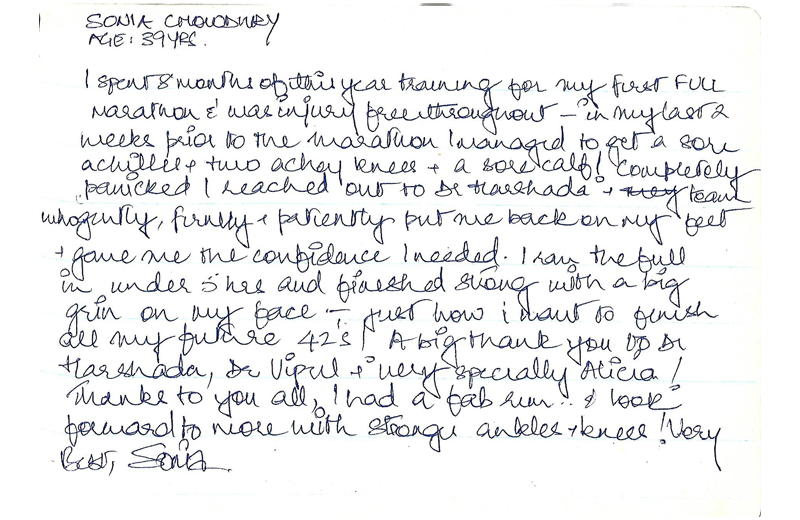 SONIA CHOWDHURY
AGE: 39 YRS.
I spent 8 months of this year training for my first FULL
Marathon & was injury free throughout – in my last 2
weeks prior to the marathon I managed to get a sore
achilles + two achey knees + a sore calf! Completely
panicked I reached out to Dr Harshada + team
who gently, firmly + patiently put me back on my feet
+ gave me the confidence I needed. I ran the full
in under 5 hrs and finished strong with a big
grin on my face – just how i want to finish
all my future 42s! A big thank you to Dr
Harshada, Dr Vipul + very specially Alicia!
Thanks to you all, I had a fab run .. & look
forward to more with stronger ankles + knees! Very
Best, Sonia